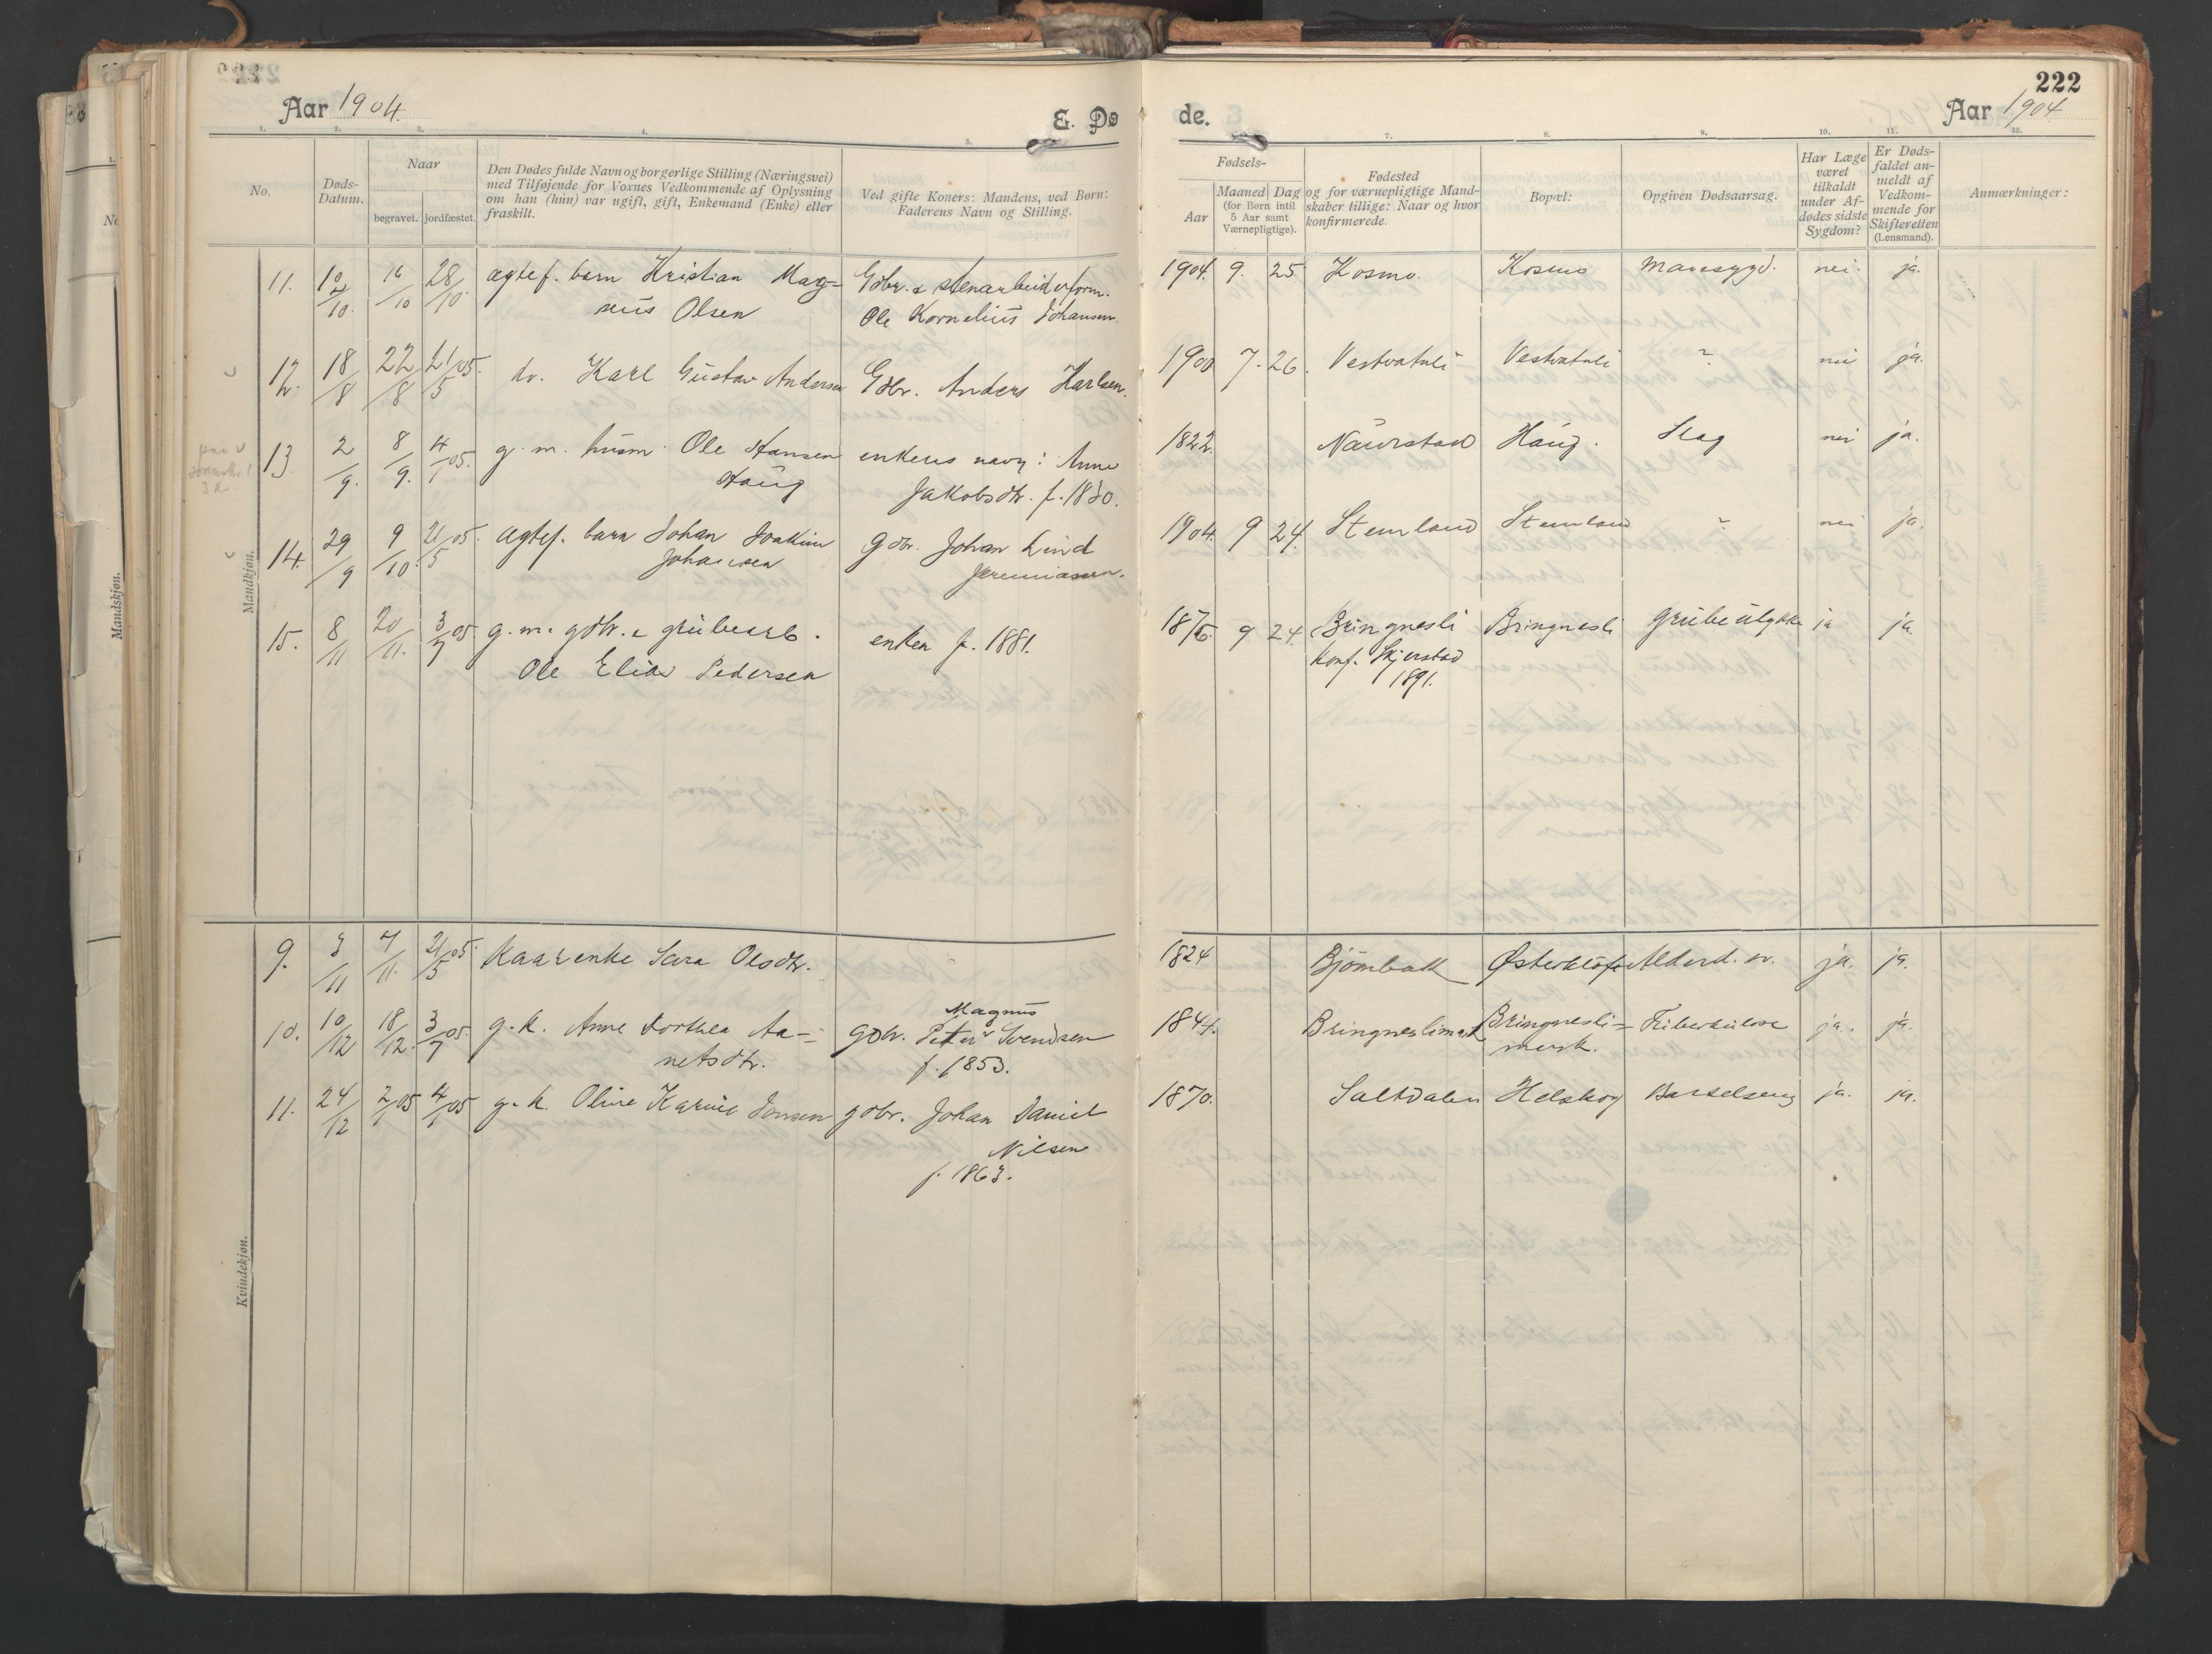 222
Aar 1904.
E. Dø
de.
Aar 1904
1. 2. 3. 4. 5. 7. 8. 9. 10. 11. 12.
No.
Døds-
Datum.
Naar
begravet. jordfæstet.
Den Dødes fulde Navn og borgerlige Stilling (Næringsvei)
med Tilføjende for Voxnes Vedkommende af Oplysning
om han (hun) var ugift, gift, Enkemand (Enke) eller
fraskilt.
Ved gifte Koners: Mandens, ved Børn:
Faderens Navn og Stilling.
Fødsels-
Aar
Maaned Dag
(for Børn intil
5 Aar samt
Værnepligtige).
Fødested
og for værnepligtige Mand-
skaber tillige: Naar og hvor
konfirmerede.
Bopæl:
Opgiven Dødsaarsag.
Har Læge
været
tilkaldt
under Af-
dødes sidste
Sygdom?
Er Døds-
faldet an-
meldt af
Vedkom-
mende for
Skifteretten
(Lensmand).
Anmærkninger:
Mandskjøn.
Mandkjøn.
11. 10/10 16/10 28/10 ægtef. barn Kristian Mag= Gdbr. & stenarbeiderform. 1904. 9. 25 Kosmo. Kosmo Mavesygd. nei. ja.
nus Olsen Ole Kornelius Johansen.
12. 18/8 22/8 21/5 05. do. Karl Gustav Andersen Gdbr. Anders Karlsen. 1900 7. 26. Vestvatnli Vestvatnli ? nei ja.
13. 2/9. 8/9. 4/1 05. g. m. husm. Ole Hansen enkens navn: Anne 1822. Naurstad Haug. Slag nei ja.
Haug Jakobsdtr. f. 1830.
14. 29/9 9/10. 21/5 05. ægtef. barn Johan Joakim Gdbr. Johan Lind 1904. 9 24. Stemland Stemland ? nei ja.
Johansen Jeremiassen.
15. 8/11 20/11. 3/7 05 g. m. gdbr. & grubearb. enken f. 1881. 1876. 9 24. Bringnesli Bringnesli Grubeulykke ja ja.
Ole Elias Pedersen Konf. Skjerstad
1891.
9. 3/11 7/11. 21/5 05. Kaarenke Sara Olsdtr. 1824 Bjørnbakk Østerkløft Alderd. sv. ja. ja.
10. 10/12 18/12. 3/7 05. g. k. Anne Dorthea Aa= Magnus
gdbr. Peter Svendsen 1844. Bringneslimark Bringnesli= Tuberkulose ja. ja.
netsdtr. f. 1853. mark.
11. 24/12 2/1 05 4/1 05 g. k. Oline Karine Jonsen gdbr. Johan Daniel 1870. Saltdalen Helskog Barselseng ja. ja.
Nilsen
f. 1863.
Kvindekjøn.